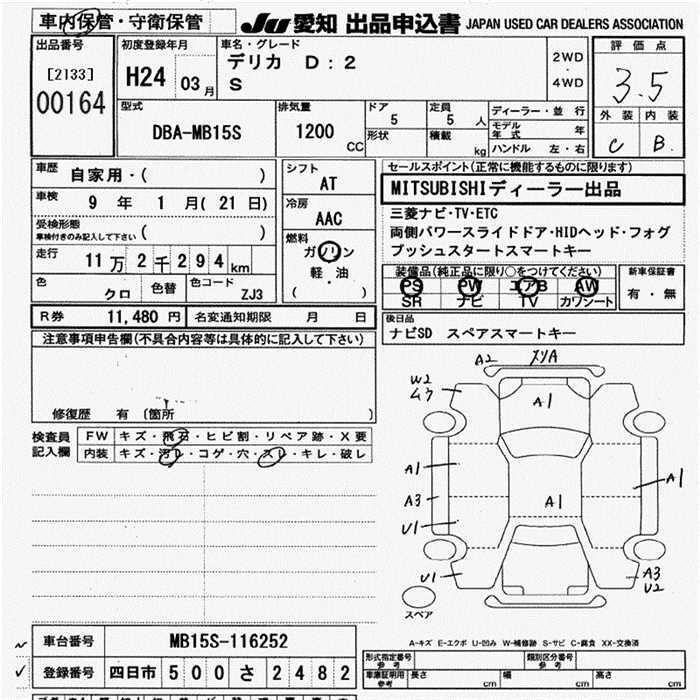 車内保管・守衛保管
JU 愛知 出品申込書 JAPAN USED CAR DEALERS ASSOCIATION
出品番号
[2133]
00164
初度登録年月
H24 03 月
車名・グレード
デリカ D:2
S
2WD
・
4WD
評価点
3.5
外装 内装
C B.
型式
DBA-MB15S
排気量
1200 CC
ドア
5
形状
定員
5 人
積載
kg
ディーラー・並行
モデル年式 年
ハンドル 左・右
車歴
自家用・( )
車検
9 年 1 月( 21 日)
受検形態
車検付きのみ記入して下さい ( )
走行
11万2千294km
色
クロ
色替
色コード
ZJ3
シフト
AT
冷房
AAC
燃料
ガソリン
軽・油
( )
セールスポイント(正常に機能するものに限ります)
MITSUBISHIディーラー出品
三菱ナビ・TV・ETC
両側パワースライドドア・HIDヘッド・フォグ
プッシュスタートスマートキー
装備品(純正品に限り○をつけてください)
PS PW エアB AW
SR ナビ TV カワシート
新車保証書
有・無
R券 11,480 円
名変通知期限 月 日
後日品
ナビSD スペアスマートキー
注意事項申告欄(不具合内容等は具体的に記入して下さい)
修復歴 有 〔箇所 〕
検査員記入欄
FW キズ・飛石・ヒビ割・リペア跡・X要
内装 キズ・汚レ・コゲ・穴・スレ・キレ・破レ
A2
メソリA
W2
A1
A1
A1
A3
A1
U1
U1
A3
U2
スペア
A-キズ E-エクボ U-凹み W-補修跡 S-サビ C-腐食 XX-交換済
車台番号 MB15S-116252
登録番号 四日市 500 さ 2482
型式指定番号
参考
類別区分番号
参考
車庫証明用
参考
長さ cm
幅 cm
高さ cm